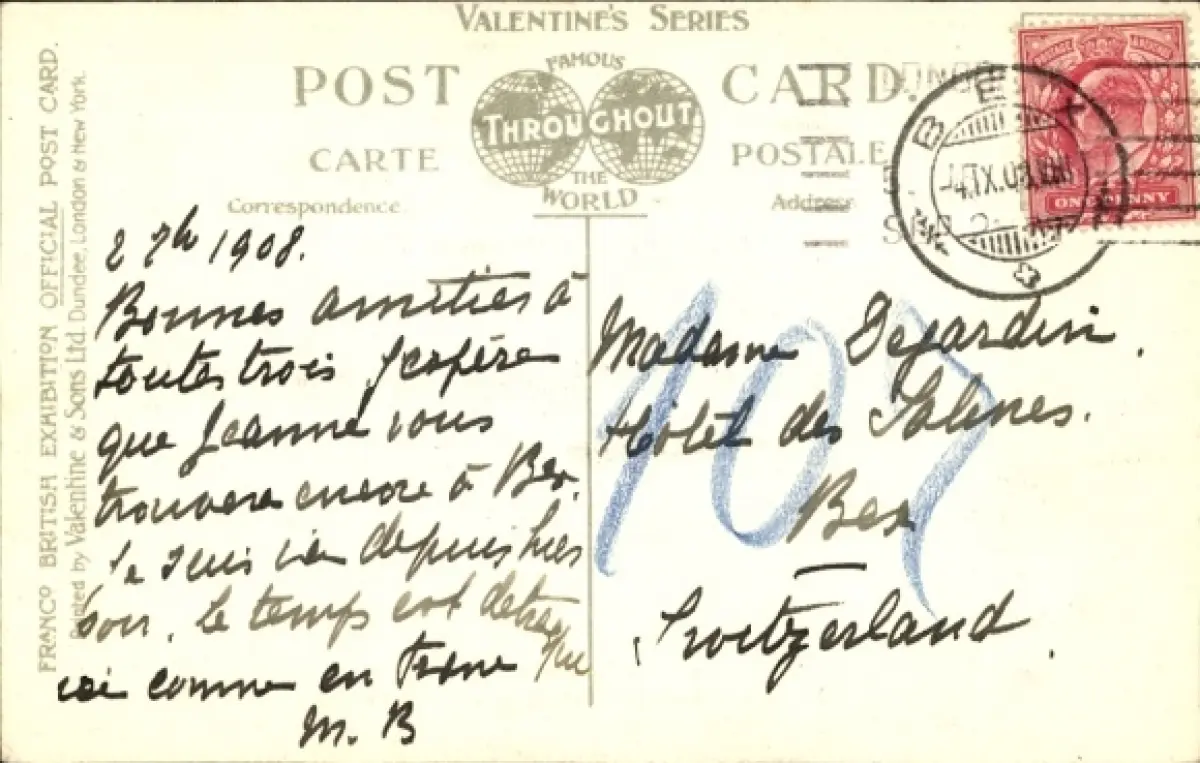 VALENTINE'S SERIES
POST CARD.
FAMOUS
THROUGHOUT
THE
WORLD
CARTE POSTALE
Correspondence.
Address
FRANCO BRITISH EXHIBITION OFFICIAL POST CARD.
Printed by Valentine & Sons Ltd. Dundee, London & New York.
BEX
ONE PENNY
2 7h 1908.
Bonnes amitiés à
toutes trois J'espère
que Jeanne vous
trouvera encore à Bex.
Je suis ici depuis hier
soir. Le temps est détraqué
ici comme en France
M. B
Madame Dejardin.
Hôtel des Salines.
Bex
Switzerland.
107